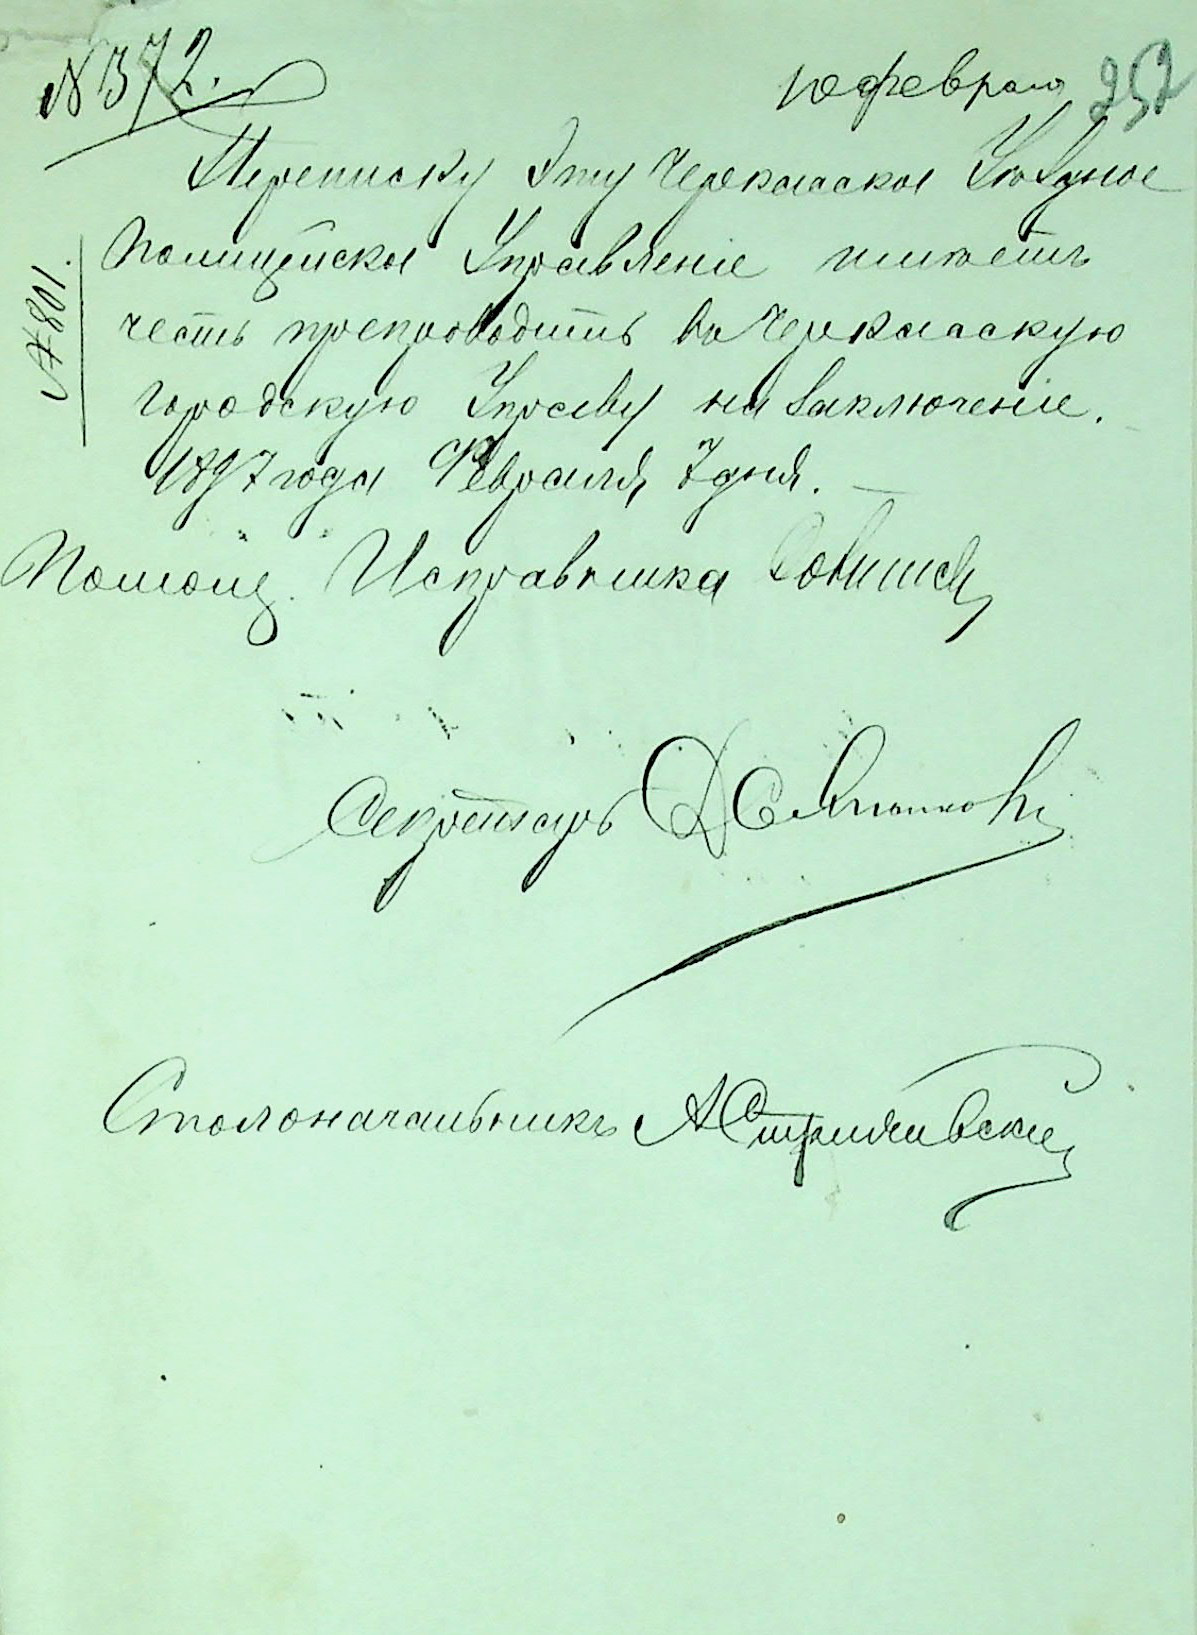 № 372.
10 февраля 252
Переписку эту Черкасское Уѣздное
№ 801.
Полицейское Управленіе имѣетъ
честь препроводить въ Черкасскую
Городскую Управу на заключеніе.
1897 года Февраля 7 дня.
Помощ. Исправника
Секретарь Д
Столоначальникъ А